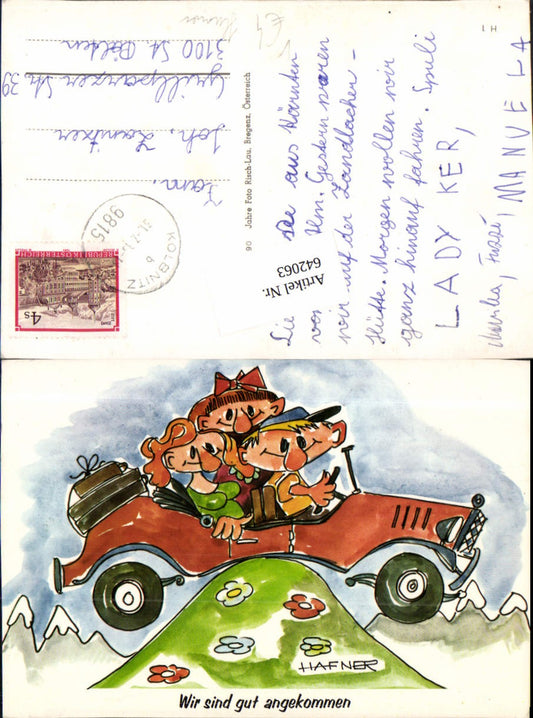 H 1
Humor
Fam.
Joh. Zanitzer
Grillparzer Str. 39
3100 St. Pölten
90 Jahre Foto Risch-Lau, Bregenz, Österreich
REPUBLIK ÖSTERREICH
4 S
9815
KOLBNITZ
Artikel Nr.
642063
aus Kärnten
von Gestern waren
wir auf der
Hütte. Morgen wollen wir
ganz hinauf fahren.
LADY KER,
MANUELA
HAFNER
Wir sind gut angekommen